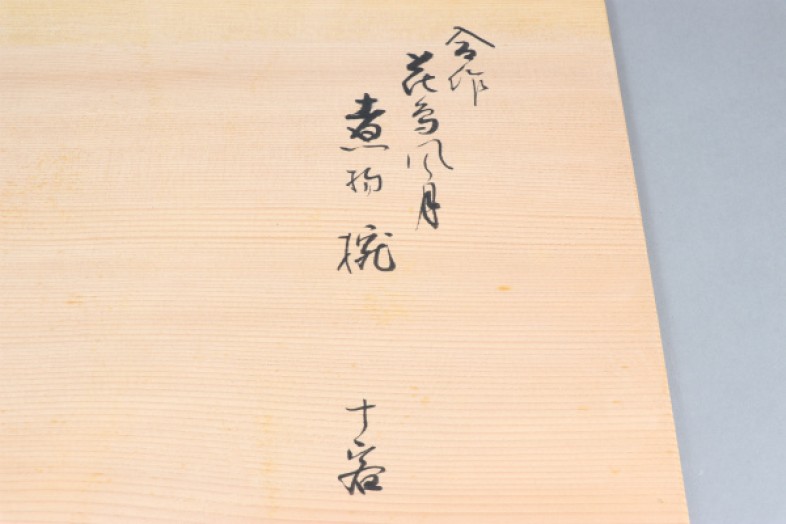 合作
花鳥風月
煮物椀
十客